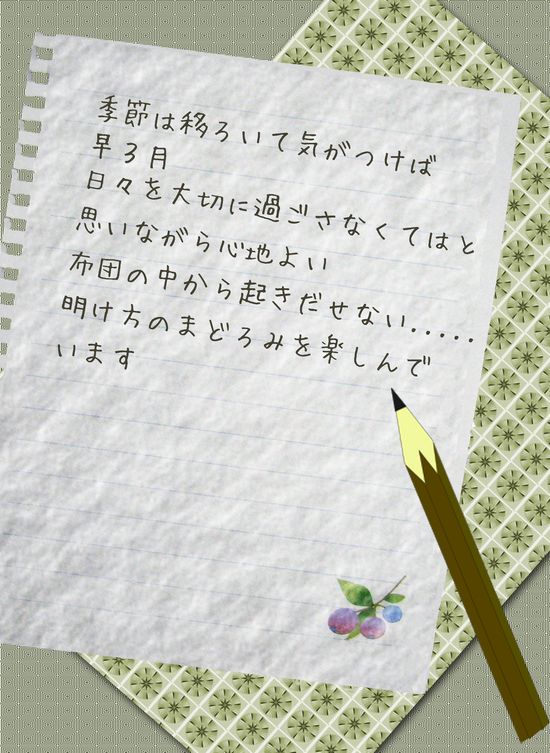 季節は移ろいて気がつけば
早３月
日々を大切に過ごさなくてはと
思いながら心地よい
布団の中から起きだせない.....
明け方のまどろみを楽しんで
います